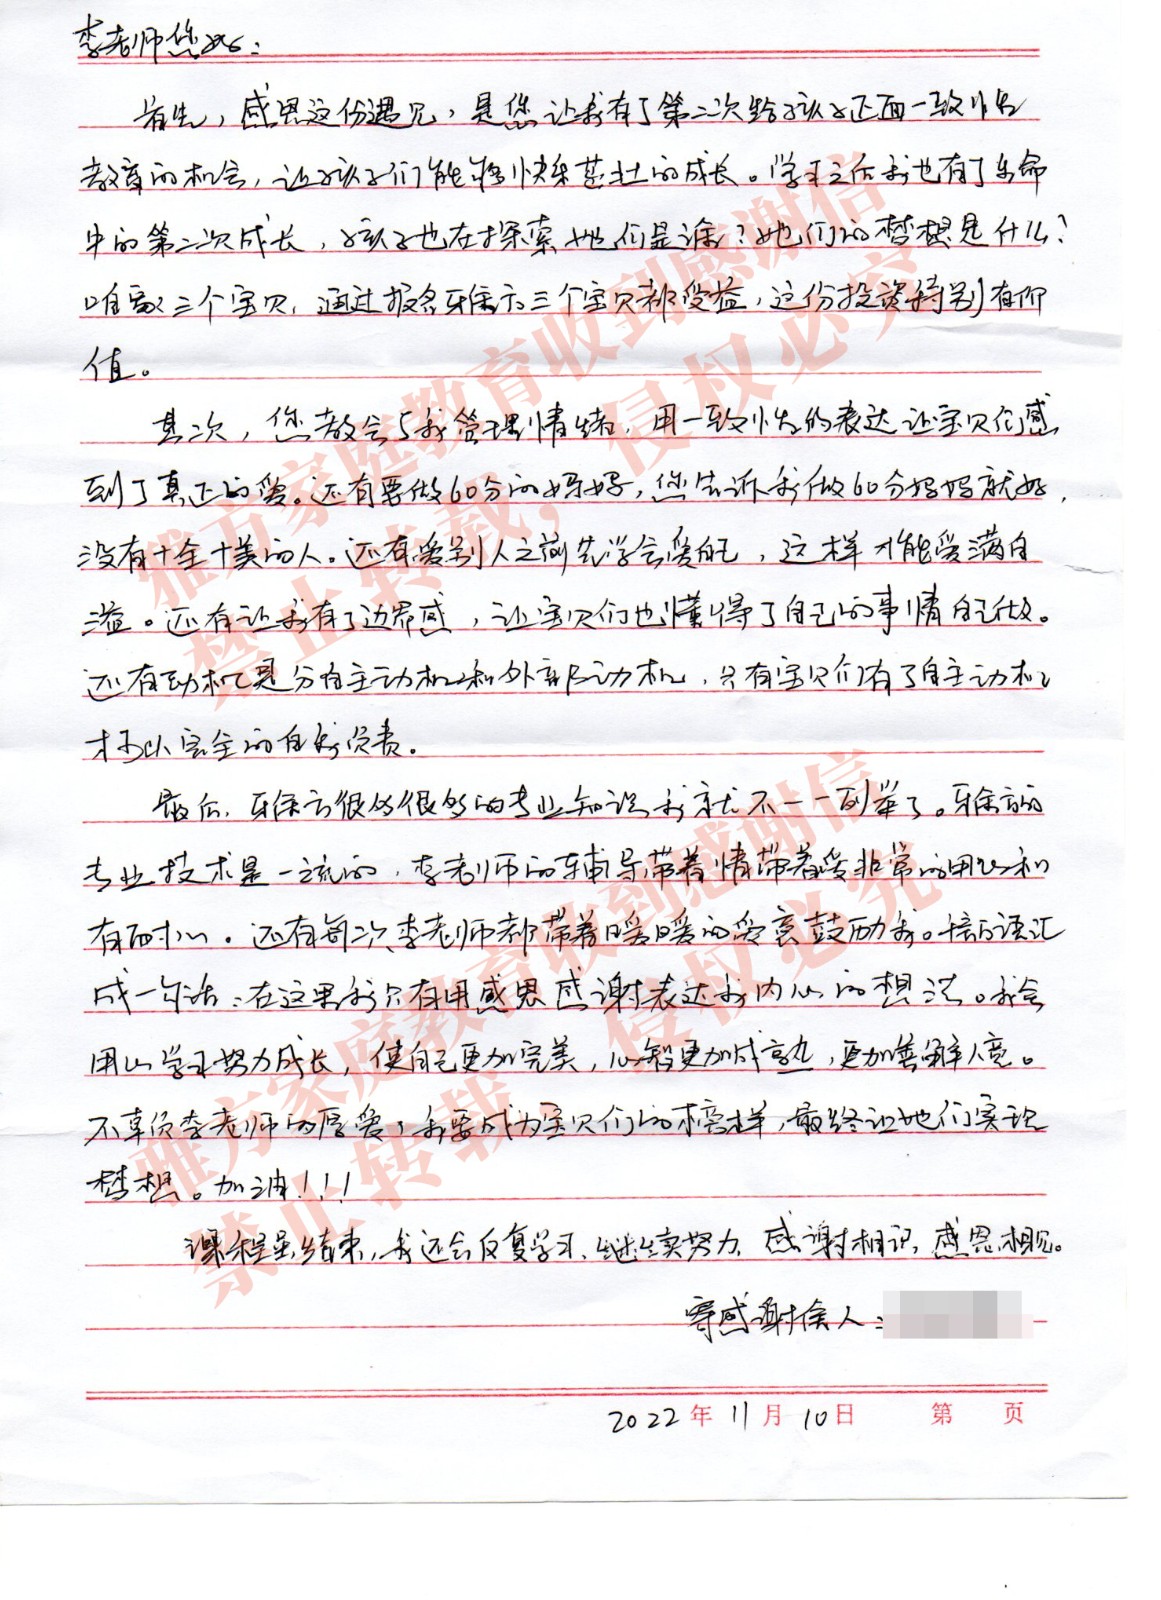 李老师您好：
首先，感恩这份遇见，是您让我有了第二次给孩子正面一致性
教育的机会，让孩子们能够快乐茁壮的成长。学习之后我也有了生命
中的第二次成长，孩子也在探索她们是谁？她们的梦想是什么？
咱家三个宝贝，通过报名雅方三个宝贝都受益，这份投资特别有价
值。
其次，您教会了我管理情绪，用一致性的表达让宝贝们感
到了真正的爱。还有要做60分的妈妈，您告诉我做60分妈妈就好，
没有十全十美的人。还有爱别人之前先学会爱自己，这样才能爱满自
溢。还有让我有了边界感，让宝贝们也懂得了自己的事情自己做。
还有动机是分自主动机和外部动机，只有宝贝们有了自主动机
才可以完全的自我负责。
最后，雅方很多很多的专业知识我就不一一列举了。雅方的
专业技术是一流的，李老师的辅导带着情带着爱非常的用心和
有耐心。还有每次李老师都带着暖暖的爱意鼓励我。千言万语汇
成一句话：在这里我只有用感恩感谢表达我内心的想法。我会
用心学习努力成长，使自己更加完美，心智更加成熟，更加善解人意。
不辜负李老师的厚爱，我要成为宝贝们的榜样，最终让她们实现
梦想。加油！！！
课程虽结束，我还会反复学习，继续努力，感谢相识，感恩相见。
寄感谢信人：
2022年11月10日 第 页
雅方家庭教育收到感谢信
禁止转载，侵权必究
雅方家庭教育收到感谢信
禁止转载，侵权必究